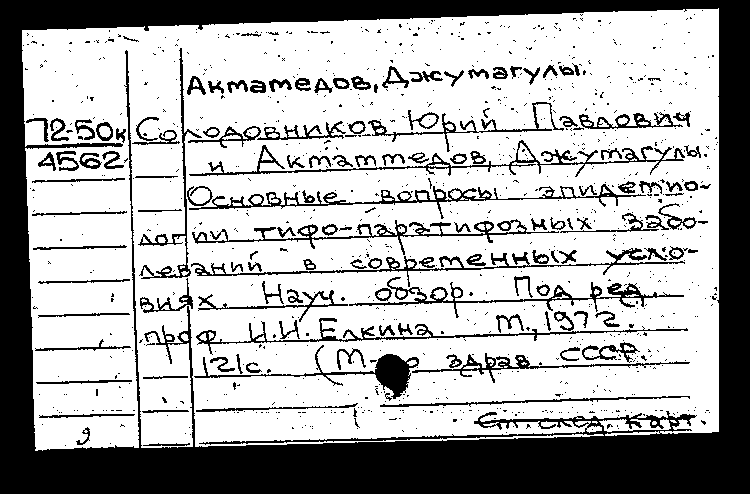 Акмамедов, Джумагулы.
72-50к Солодовников, Юрий Павлович
4562 и Акмаммедов, Джумагулы.
Основные вопросы эпидемио-
логии тифо-паратифозных забо-
леваний в современных усло-
виях. Науч. обзор. Под ред.
проф. И.И. Елкина. М., 1972.
121с. (М-во здрав. СССР.
См. след. карт.
9